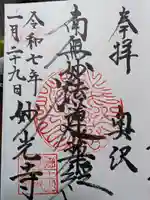 奉拝 奥沢
南無妙法蓮華経
令和七年
一月二十九日
妙光寺